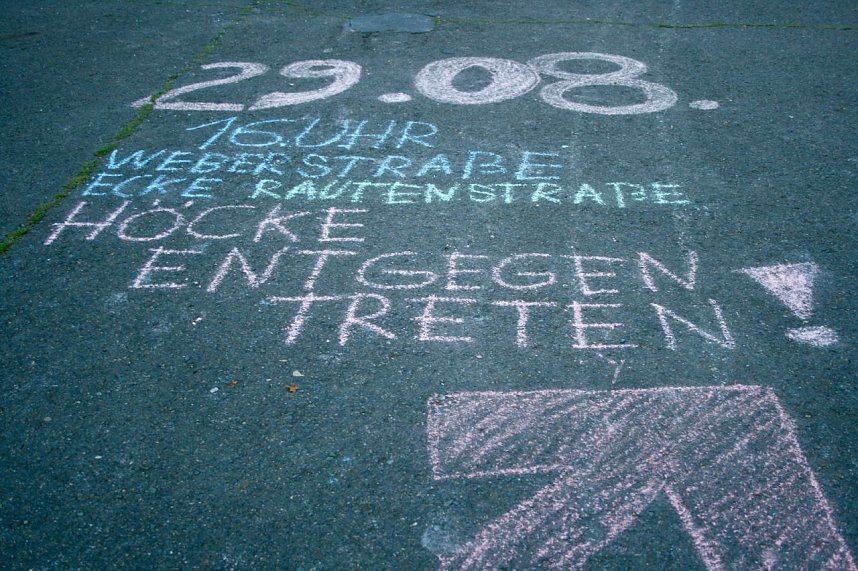 29.08.
16.UHR
WEBERSTRAßE
ECKE RAUTENSTRAßE
HÖCKE
ENTGEGEN
TRETEN!